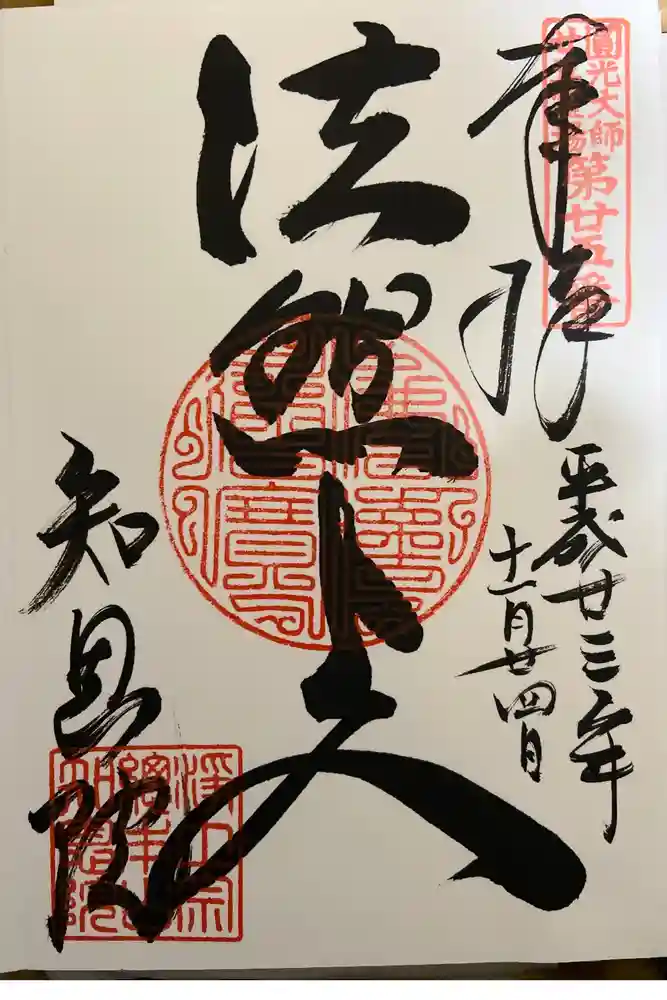 奉拝
圓光大師
廿五霊場
第廿五番
平成廿三年
十一月廿四日
法然上人
知恩院
浄土宗
總本山
知恩院